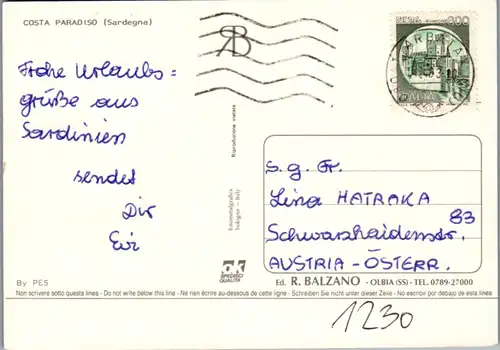 COSTA PARADISO (Sardegna)
Frohe Urlaubs=
grüße aus
Sardinien
sendet
Dir
Evi
By PES
Riproduzione vietata
RB
ITALIA
s.g. Fr.
Lina HATRAKA
Schwarzhaidenstr. 83
AUSTRIA - ÖSTERR.
SPEDISCI
QUALITÀ
Ed. R. BALZANO - OLBIA (SS) - TEL. 0789-27000
Non scrivere sotto questa linea - Do not write below this line - Ne rien écrire au-dessous de cette ligne - Schreiben Sie nicht unter dieser Zeile - No escribir por debajo de esta linea
1230